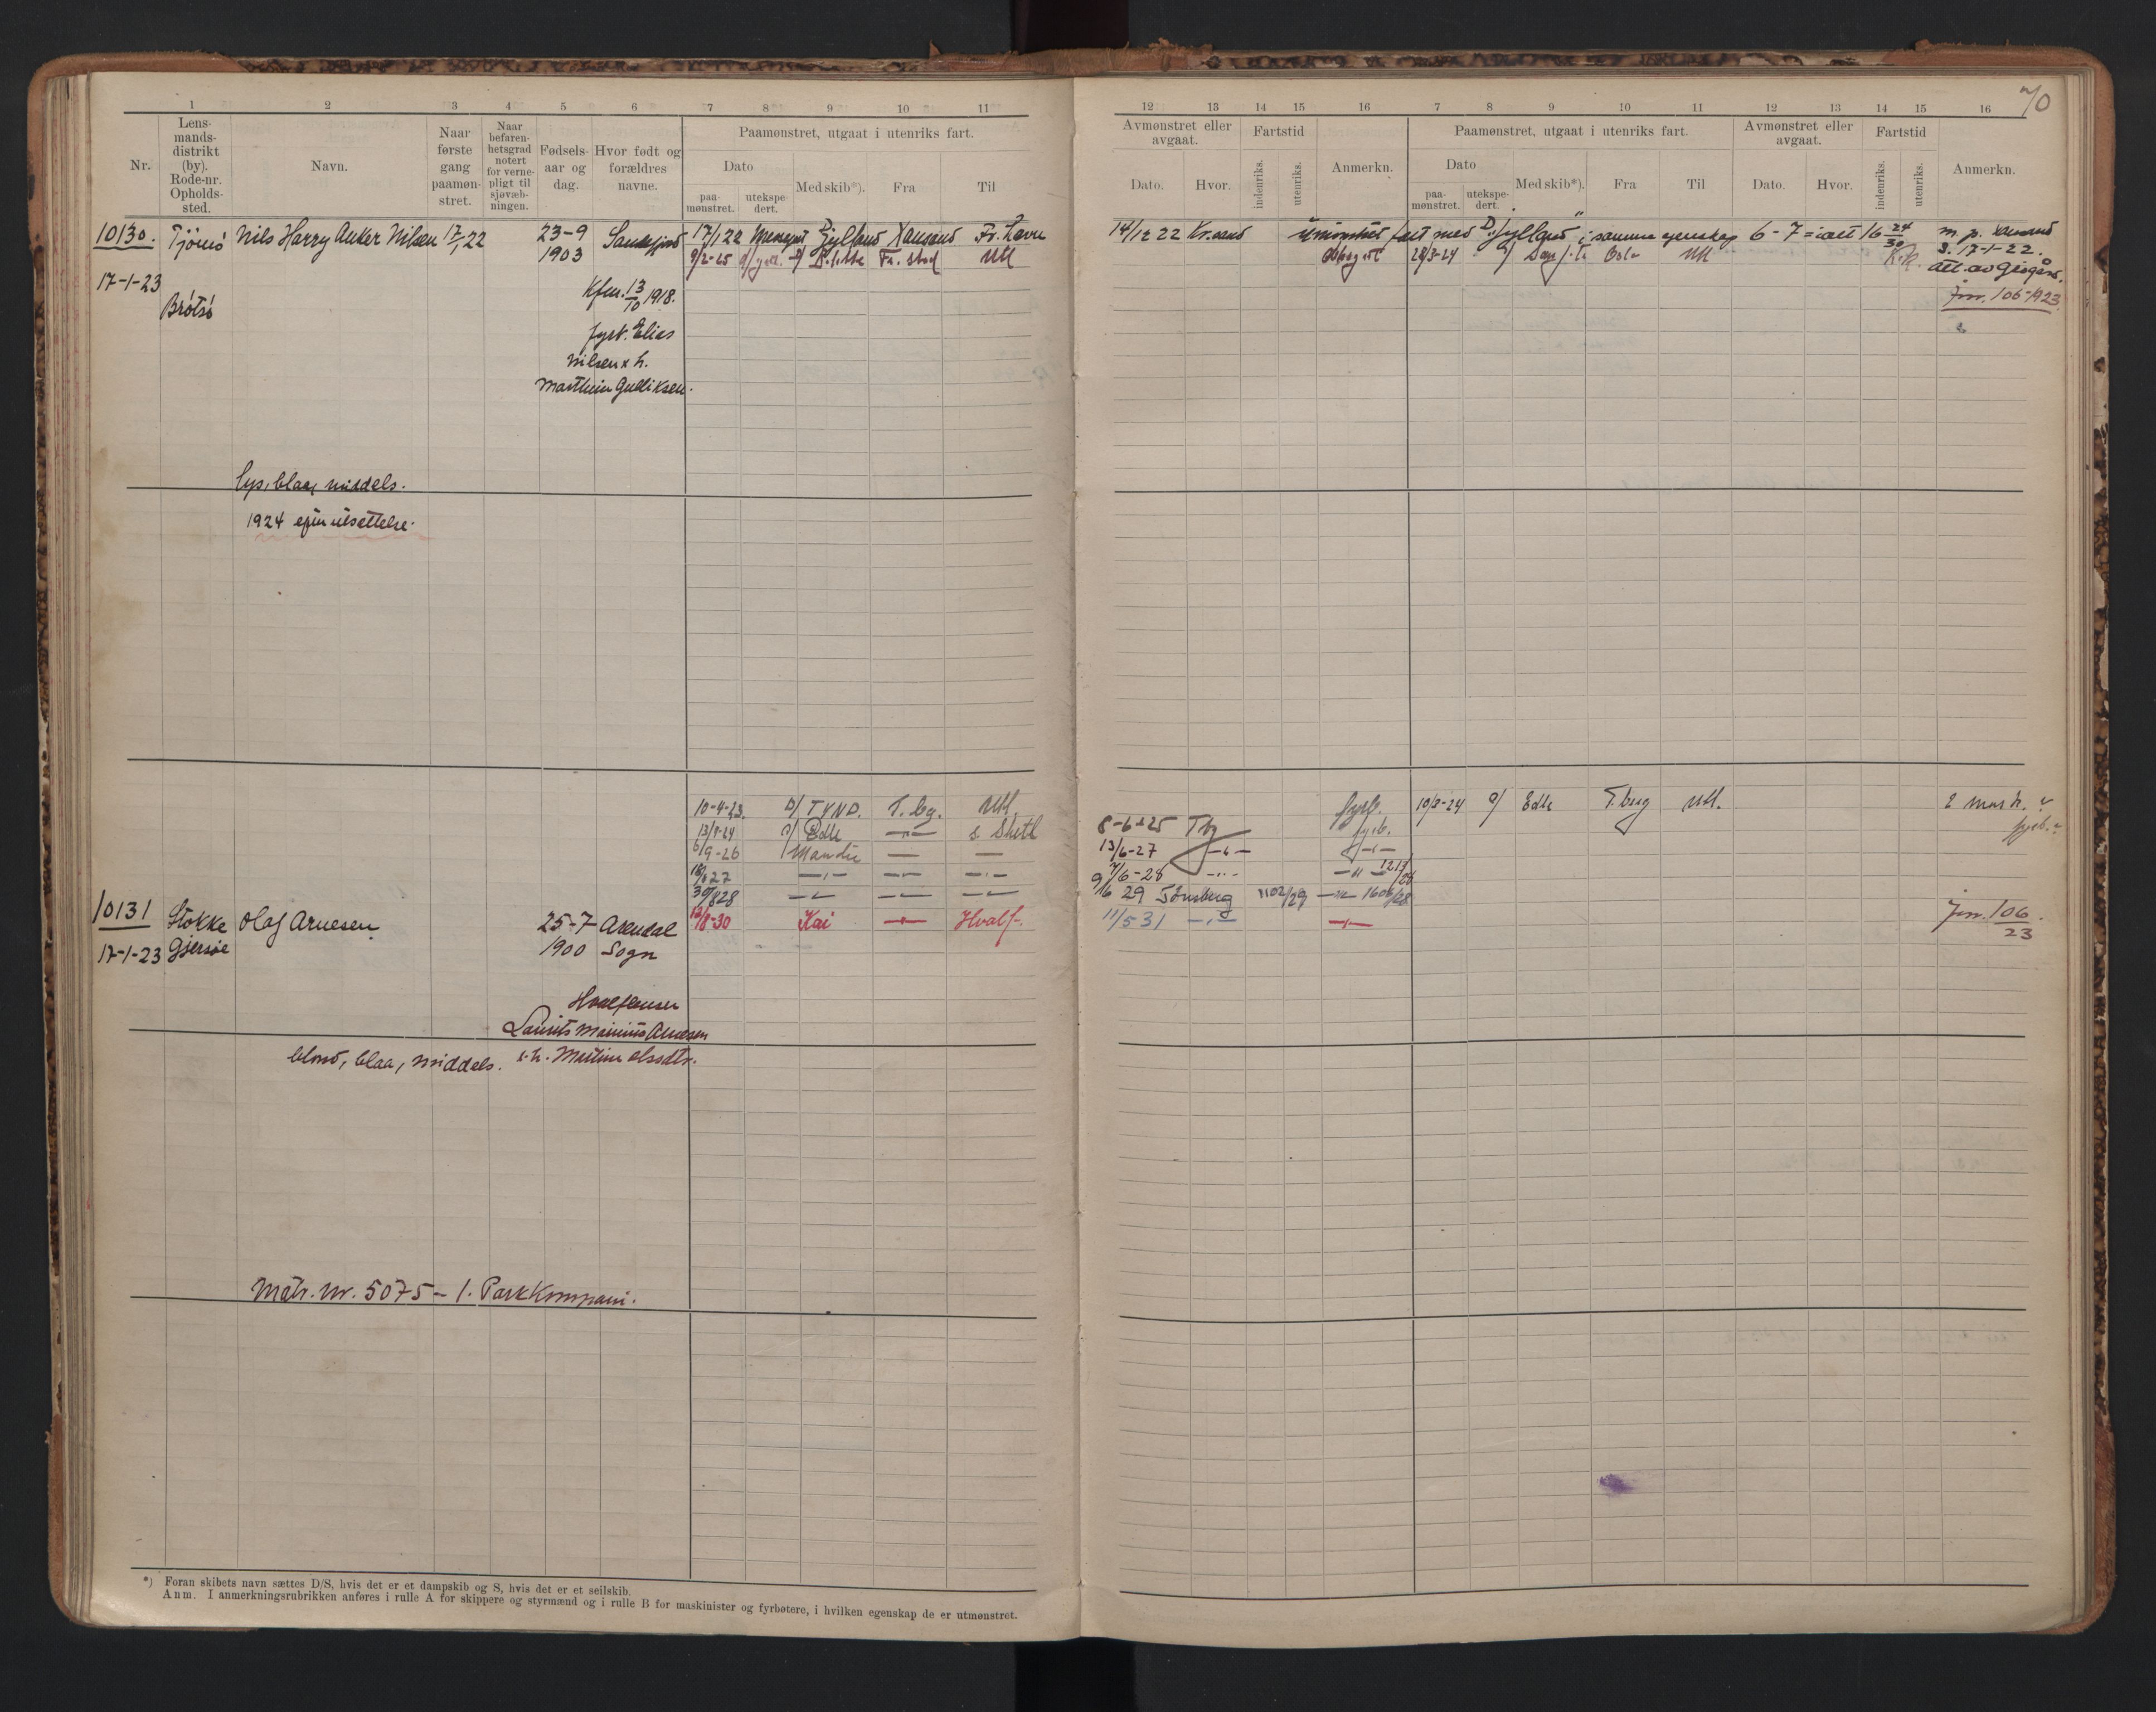 70
1 2 3 4 5 6 7 8 9 10 11
12 13 14 15 16 7 8 9 10 11 12 13 14 15 16
Nr.
Lens-
mands-
distrikt
(by).
Rode-nr.
Opholds-
sted.
Navn.
Naar
første
gang
paamøn-
stret.
Naar
befaren-
hetsgrad
notert
for verne-
pligt til
sjøvæb-
ningen.
Fødsels-
aar og
dag.
Hvor født og
forældres
navne.
Paamønstret, utgaat i utenriks fart.
Dato
paa-
mønstret.
utekspe-
dert.
Med skib*).
Fra
Til
Avmønstret eller
avgaat.
Dato.
Hvor.
Fartstid
indenriks.
utenriks.
Anmerkn.
Paamønstret, utgaat i utenriks fart.
Dato
paa-
mønstret.
utekspe-
dert.
Med skib*).
Fra
Til
Avmønstret eller
avgaat.
Dato.
Hvor.
Fartstid
indenriks.
utenriks.
Anmerkn.
10130. Tjömö Nils Harry Anker Nilsen 17/1 22 23-9 Sandefjord 17/1 22 Jylland Xansand Fr. Havn
1903 9/2-25 Fr. stad UK
17-1-23
Brötsö
Kfm. 13/10 1918.
fyrv. Elias
Nilsen & h.
Marthine Gulliksen.
14/12 22 Kr.sand faet med D. "Jylland" i samme egenskap 6-7 = i alt 16 24/30 m. p. Xansand
28/3-24 Oslo UK s. 17-1-22.
att. av
Jnr. 106-1923
Lys, blaa, middels.
1924 efter utsættelse.
10-4-23. D/ TYND. T.bg. UK
13/8-24 D/ Edle —"— s. Shetl
6/9-26 Maudie — —
27 —"— —"— —"—
30/8 28 —"— —"— —"—
12/8-30 Kai —"— Hvalf.
fyrb. 19/8-24 D/ Edle T.berg UK.
8-6-25 Tbg fyrb.
13/6-27 —"— —"—
7/6-28 —"— —"—
9/6 29 Tönsberg 1102/29 —"—
11/5 31 —"— —"—
10131 Stokke Olaf Arnesen 25-7 Arendal
17-1-23 Gjersøe 1900 Sogn
Jnr. 106/23
Hvalfanger
Laurits Arnesen
& h. Martine Olsdtr.
blond, blaa, middels.
Matr. Nr. 5075 – 1. Parkkompani.
*) Foran skibets navn sættes D/S, hvis det er et dampskib og S, hvis det er et seilskib.
Anm. I anmerkningsrubrikken anføres i rulle A for skippere og styrmænd og i rulle B for maskinister og fyrbøtere, i hvilken egenskap de er utmønstret.